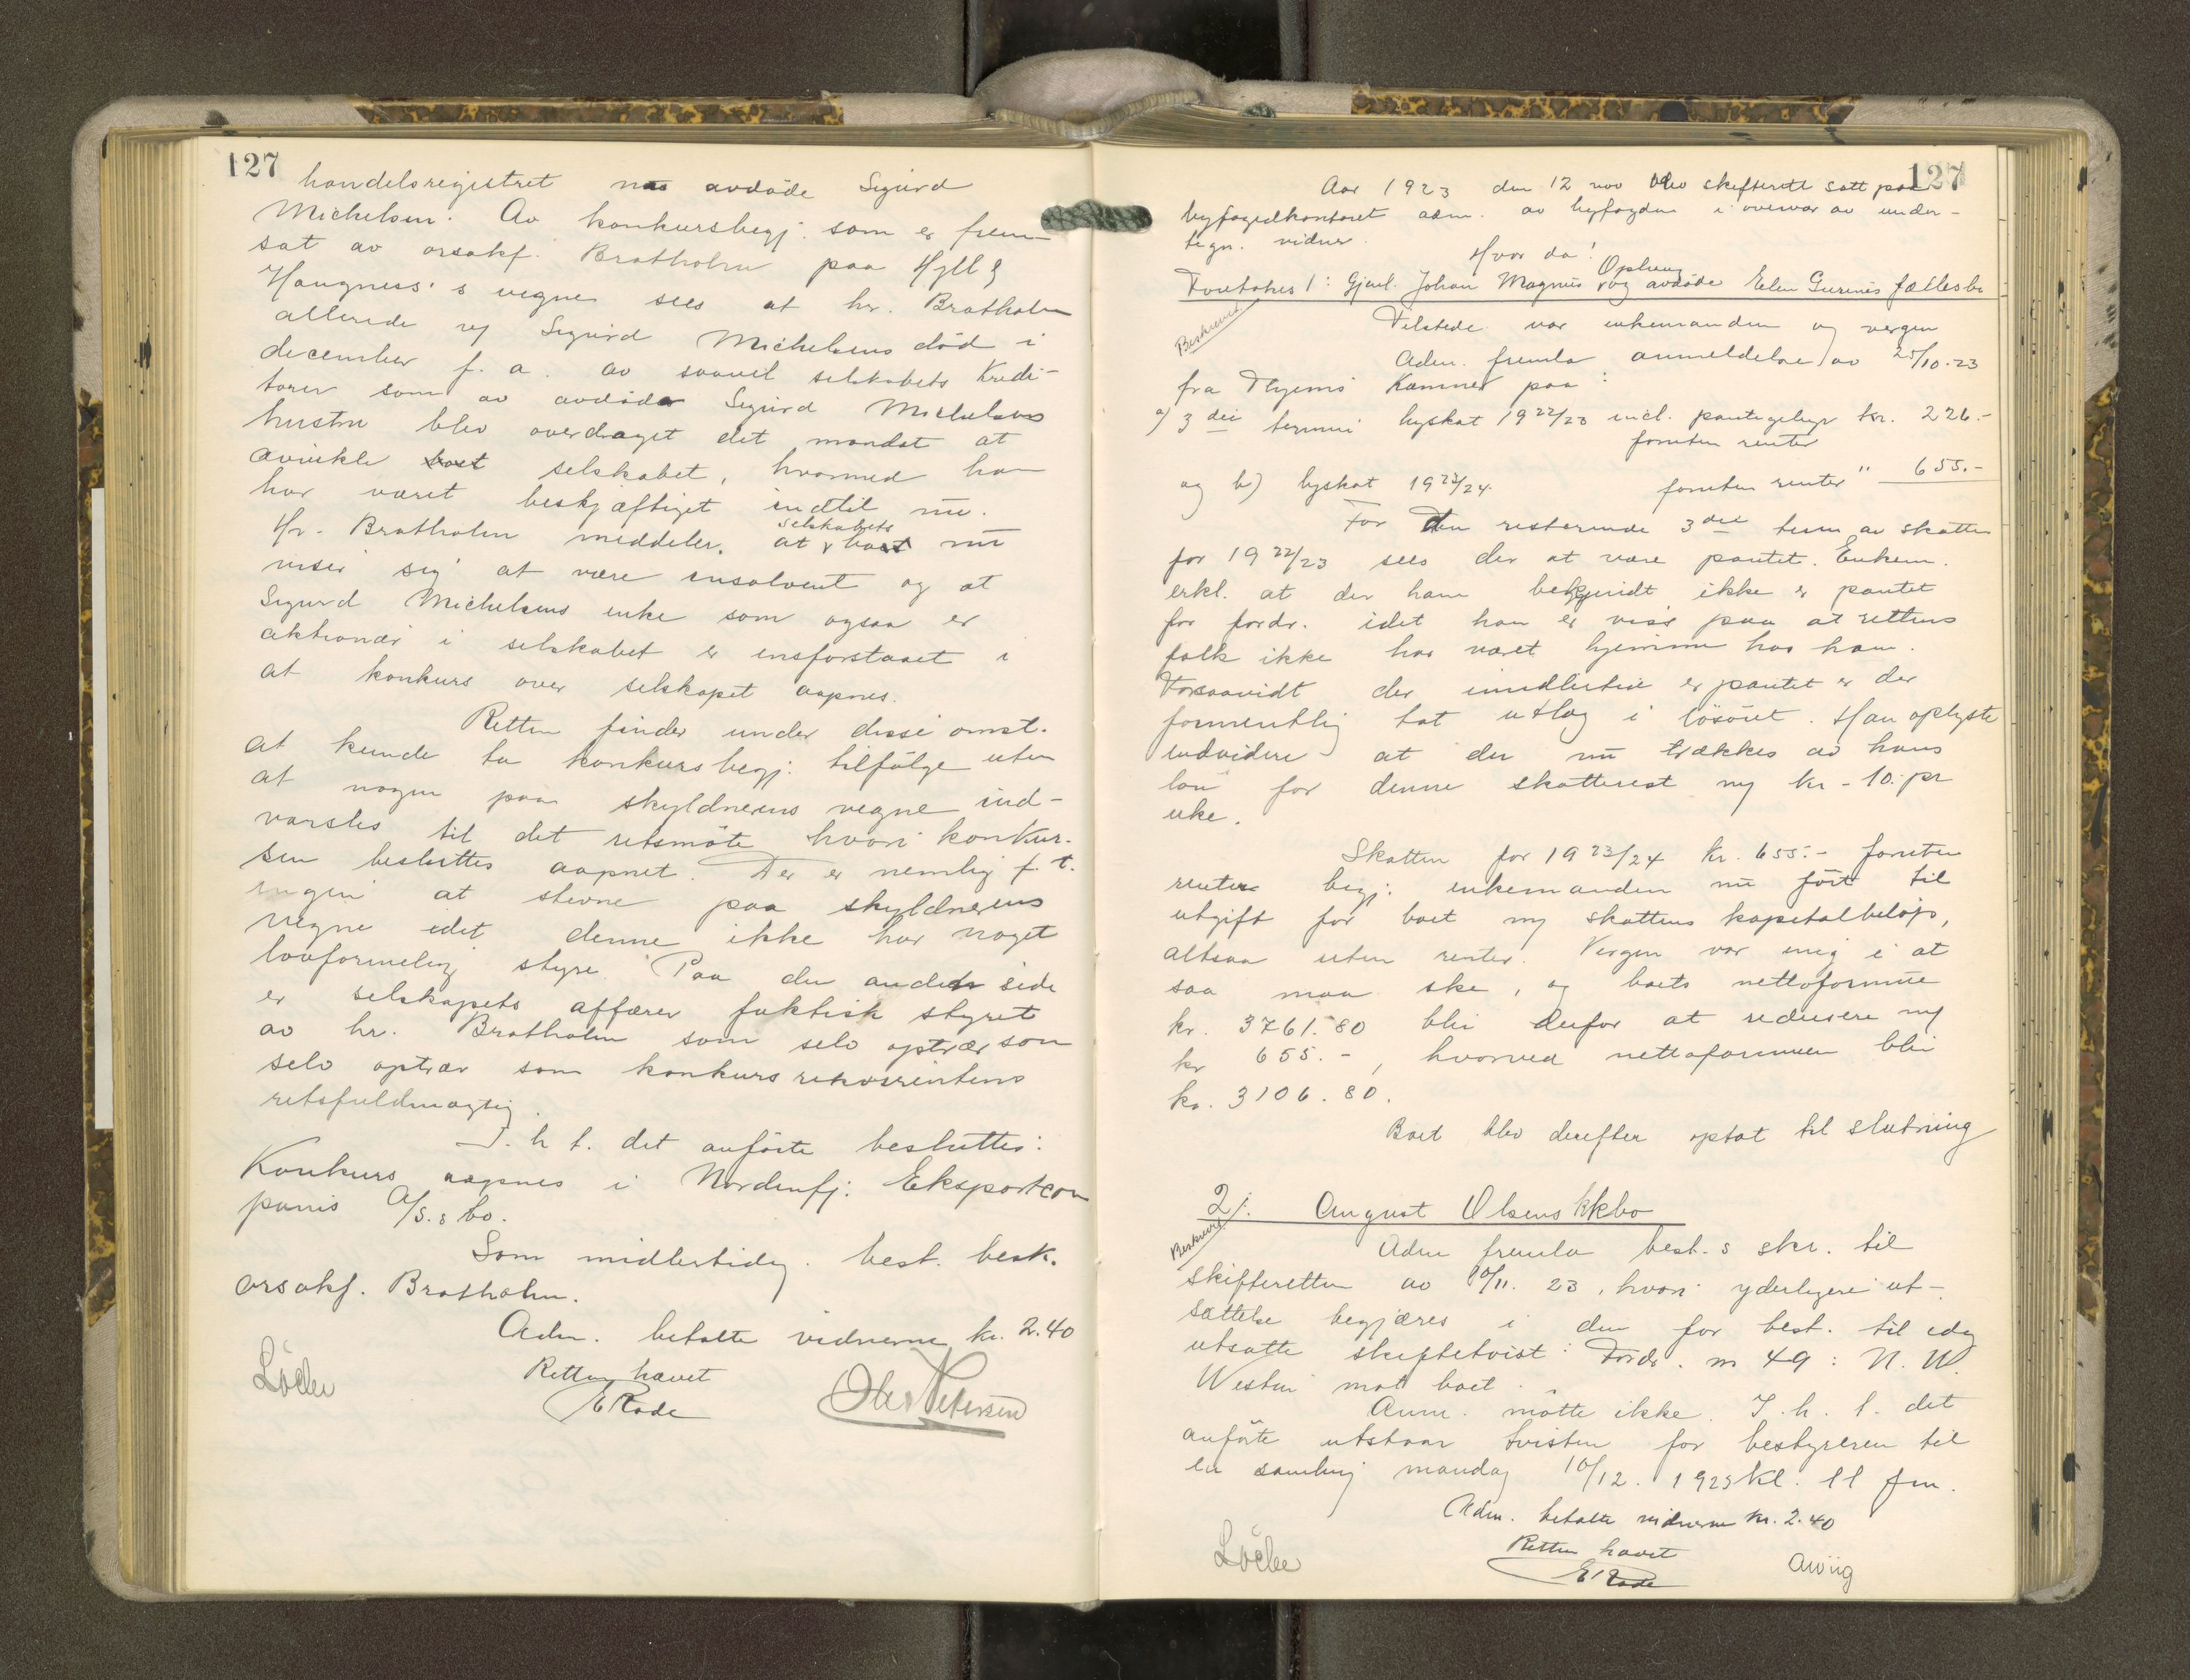 127
handelsregistret nu avdøde Sigurd
Michelsen. Av konkursbegj. som er frem-
sat av orsakf. Bratholm paa Hyll &
Haugness's vegne sees at hr. Bratholm
allerede ved Sigurd Michelsens død i
december f. a. av saavel selskabets Kredi-
torer som av avdøde Sigurd Michelsens
hustru blev overdraget det mandat at
avvikle selskabet, hvormed han
har været beskjæftiget indtil nu.
Hr. Bratholm meddeler, at selskabets bo nu
viser sig at være insolvent og at
Sigurd Michelsens enke som ogsaa er
aktionær i selskabet er enforstaaet i
at konkurs over selskapet aapnes.
Retten finder under disse omst.
at kunde ta konkursbegj. tilfølge uten
at nogen paa skyldnerens vegne ind-
varsles til det retsmøte hvori konkur-
sen besluttes aapnet. Der er nemlig f. t.
ingen at stevne paa skyldnerens
vegne idet denne ikke har noget
lovformelig styre. Paa den anden side
er selskapets affærer faktisk styret
av hr. Bratholm som selv optrær som
selv optrær som konkursrekvirentens
retsfuldmægtig.
I. h. t. det anførte besluttes:
Konkurs aapnes i Nordenfj. Eksportcom
panis A/S.s bo.
Som midlertidig best. besk.
orsakf. Bratholm.
Adm. betalte vidnerne kr. 2.40
Retten hævet
ERode
127
Aar 1923 den 12 nov blev skifterett satt paa
byfogedkontoret adm. av byfogden i overvær av under-
tegn. vidner.
Hvor da!
Foretokes 1: Gjenl. Johan Magnus Ophaug og avdøde Elen Gurines fællesbo
Beskrevet
Tilstede var enkemanden og vergen
Adm. fremla anmeldelse av 25/10.23
fra Thjems Kæmner paa:
a) 3die termin byskat 1922/23 incl. pantegebyr kr. 226.-
foruten renter
og b) byskat 1923/24. foruten renter " 655.-
For den resterende 3die term av skatten
for 1922/23 sees der at være pantet. Enkem.
erkl. at der ham bekjendt ikke er pantet
for fordr. idet han er viss paa at rettens
folk ikke har været hjemme hos ham.
Forsaavidt der imidlertid er pantet er der
formentlig tat utlæg i løsøret. Han oplyste
endvidere at der nu trækkes av hans
løn for denne skatterest m/ kr. 10. pr
uke.
Skatten for 1923/24 kr. 655.- foruten
renter begj. enkemanden nu ført til
utgift for boet m/ skattens kapitalbeløp,
altsaa uten renter. Vergen var enig i at
saa maa ske, og boets nettoformue
kr. 3761.80 blir derfor at redusere m/
kr 655.-, hvorved nettoformuen blir
kr. 3106.80.
Boet blev derefter optat til slutning
2). August Olsens kkbo
Beskrevet
Adm fremla best.s skr. til
skifteretten av 10/11. 23, hvori yderligere ut-
sættelse begjæres i den for best. til idag
utsatte skiftetvist: Fordr. nr 49: N. W.
Westin mot boet.
Anm. møtte ikke. I. h. t. det
anførte utstaar tvisten for bestyreren til
en samling mandag 10/12. 1923 Kl. 11 fm.
Adm. betalte vidnerne kr. 2.40
Retten hævet
ERode